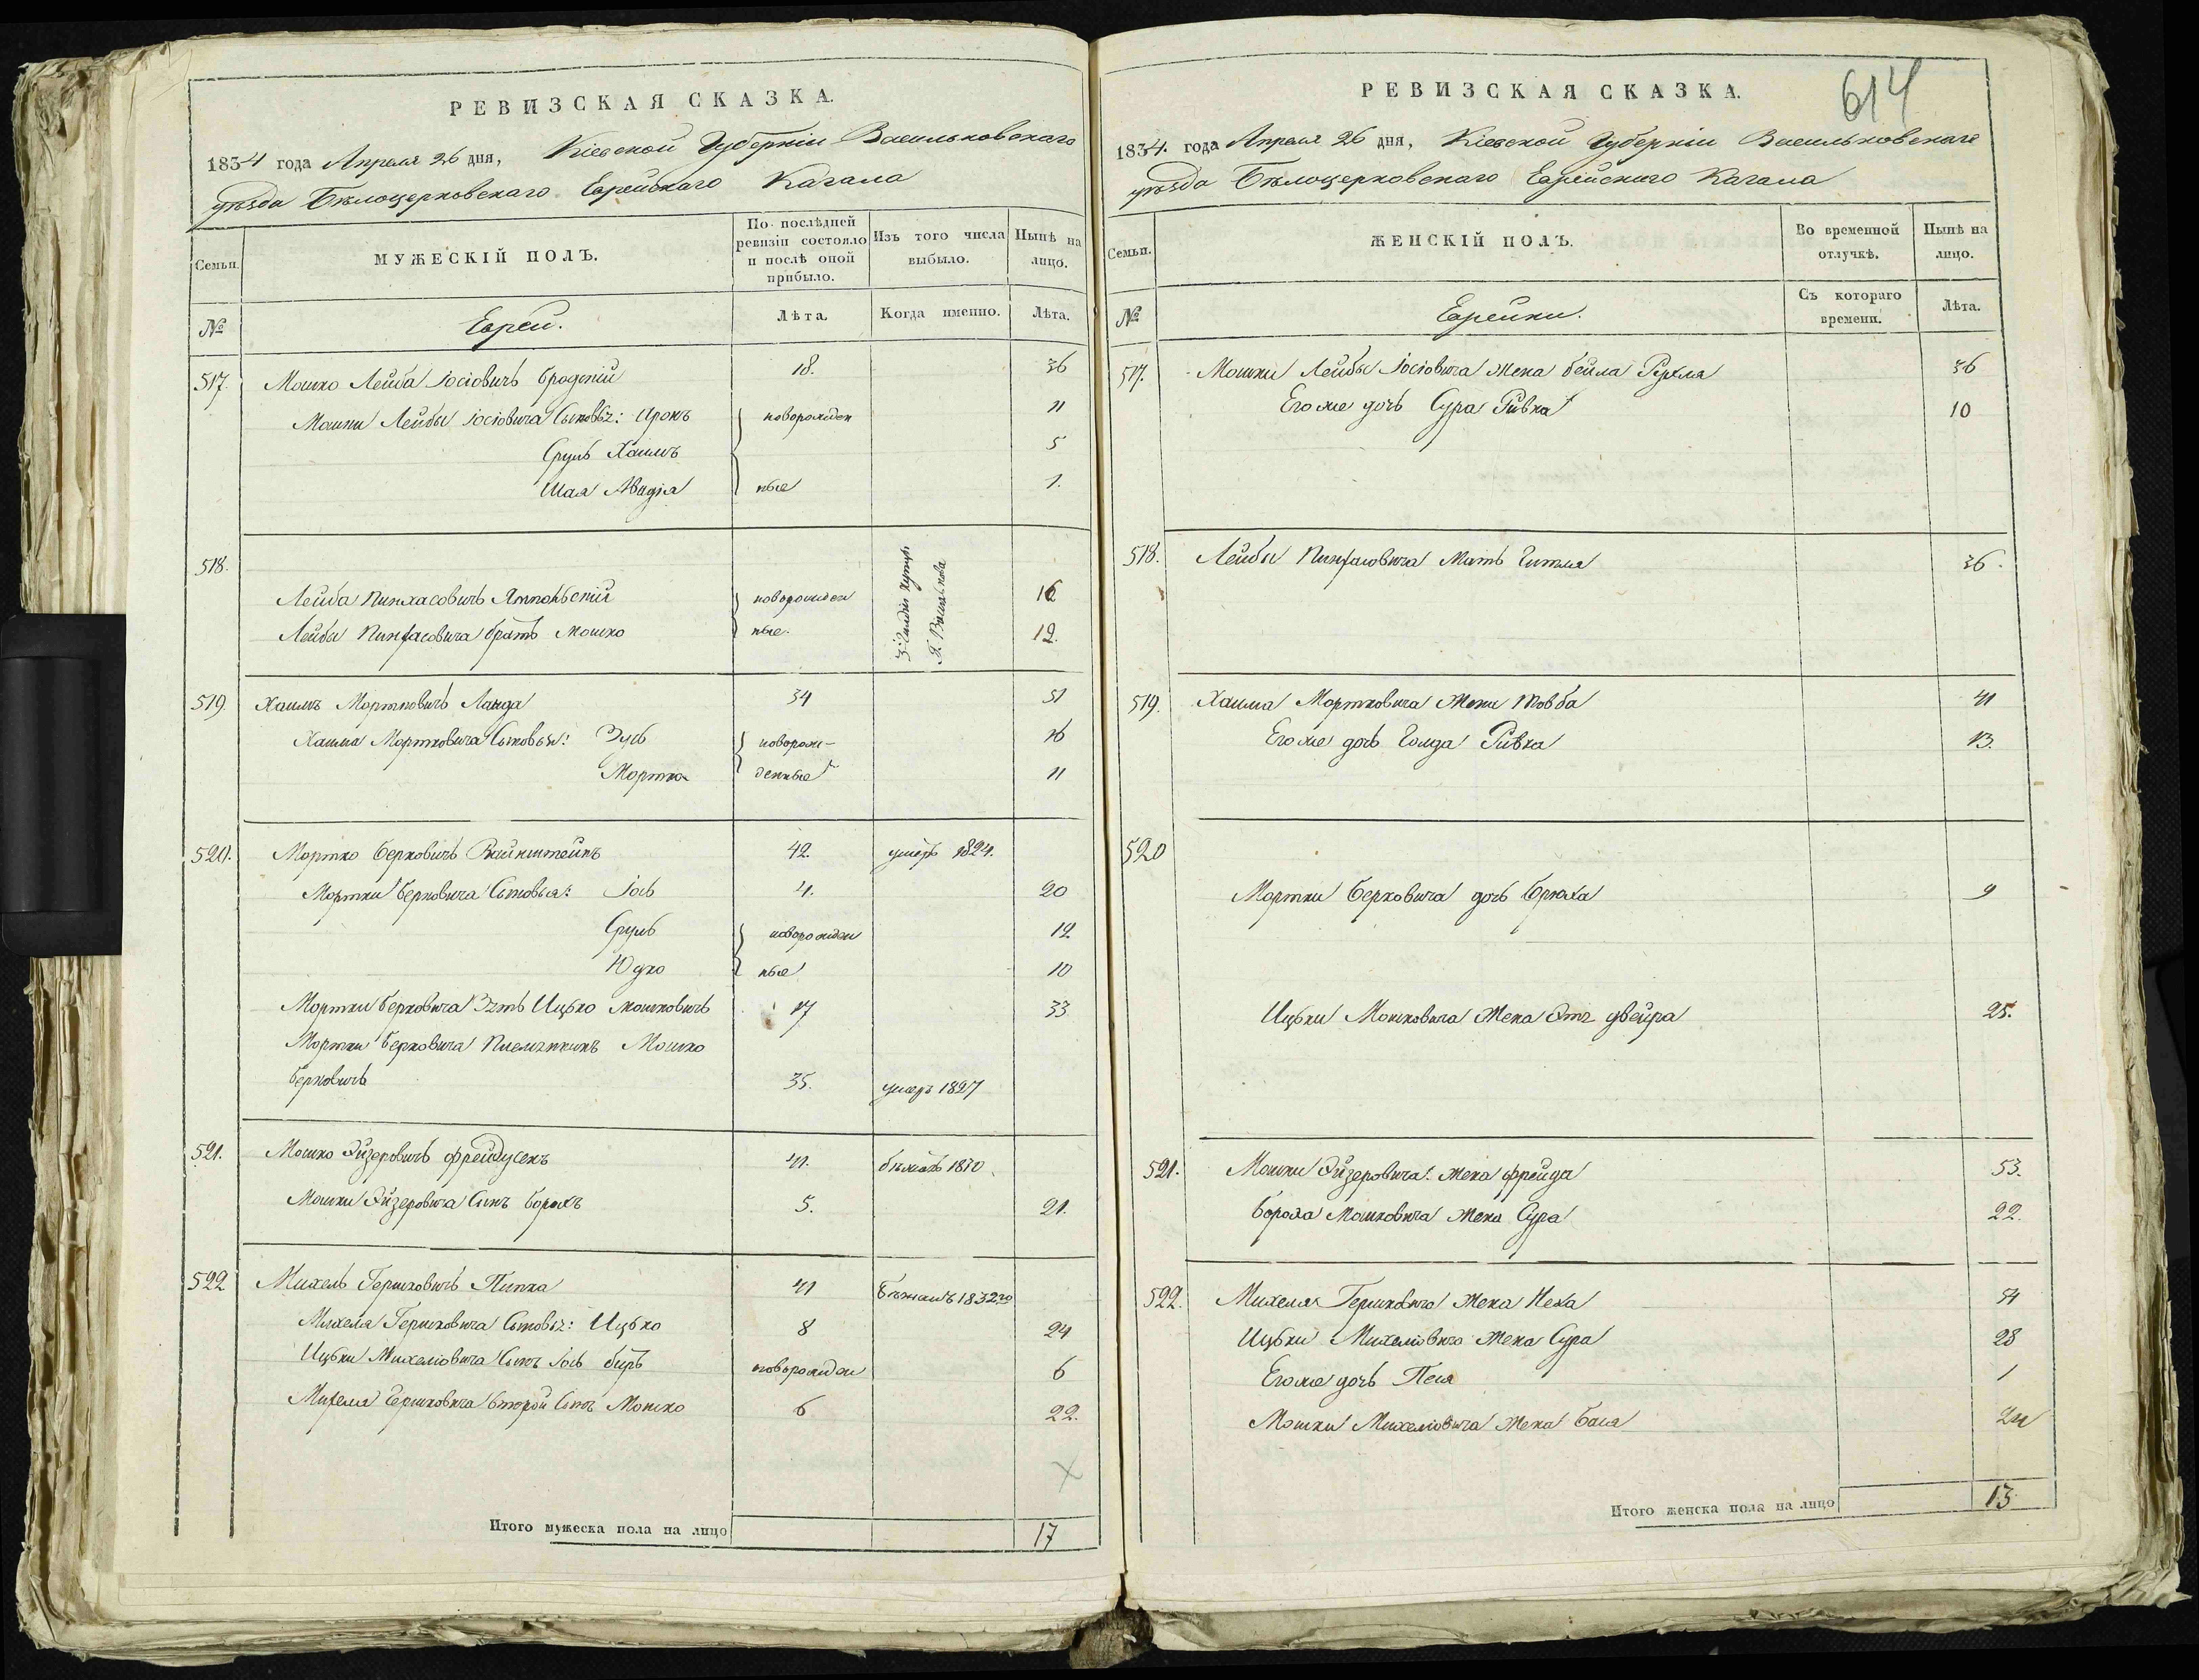 РЕВИЗСКАЯ СКАЗКА.
1834 года Апреля 26 дня, Кіевской Губерніи Васильковскаго
уѣзда Бѣлоцерковскаго Еврейскаго Кагала
Семьи. МУЖЕСКІЙ ПОЛЪ. По послѣдней ревизіи состояло и послѣ оной прибыло. Изъ того числа выбыло. Нынѣ на лицо.
№ Евреи. Лѣта. Когда именно. Лѣта.
517. Мошко Лейба Іосіовичъ Бродскій 18. 36
Мошки Лейбы Іосіовича Сыновьѧ: Аронъ новорожден 11
Сруль Хаимъ 5
Шая Авадія ные 1.
518.
Лейба Пинхасовичъ новорожден 16
Лейбы Пинхасовича братъ Мошко ные. 12.
3й Гилдіи
Г. Василькова
519. Хаимъ Мортковичъ Ланда 34 51
Хаима Мортковича Сыновья: Эль новорож- 16
Мортко денные 11
520. Мортко Берковичъ Вайнштейнъ 42. умеръ 1824.
Мортки Берковича Сыновья: Іось 4. 20
Сруль новорожден 12
Юдко ные 10
Мортки Берковича Зять Ицько Мошковичъ 17 33
Мортки Берковича Племянникъ Мошко
Берковичъ 35. умеръ 1827
521. Мошко Эйзеровичъ 41. бѣжалъ 1830.
Мошки Эйзеровича Сынъ Борохъ 5. 21.
522 Михель Гершковичъ Пипка 41 Бѣжалъ 1832го
Михеля Гершковича Сыновья: Ицько 8 24
Ицьки Михеліовича Сынъ Іось новорожден 6
Михеля Гершковича второй Сынъ Мошко 6 22.
Итого мужеска пола на лицо 17
614
РЕВИЗСКАЯ СКАЗКА.
1834. года Апреля 26 дня, Кіевской Губерніи Васильковскаго
уѣзда Бѣлоцерковскаго Еврейскаго Кагала
Семьи. ЖЕНСКІЙ ПОЛЪ. Во временной отлучкѣ. Нынѣ на лицо.
№ Еврейки. Съ котораго времени. Лѣта.
517. Мошки Лейбы Іосіовича Жена Бейла Рухля 36
Его же дочь Сура Ривка 10
518. Лейбы Пинхасовича Мать Гитля 36.
519. Хаима Мортковича Жена Товба 41
Его же дочь Голда Ривка 13.
520
Мортки Берковича дочь Брюха 9
Ицьки Мошковича Жена Двейра 25.
521. Мошки Эйзеровича Жена Фрейда 53.
Бороха Мошковича Жена Сура 22.
522. Михеля Гершковича Жена Неха 54
Ицьки Михеліовича Жена Сура 28
Его же дочь Песя 1
Мошки Михеліовича Жена Бася
Итого женска пола на лицо 13